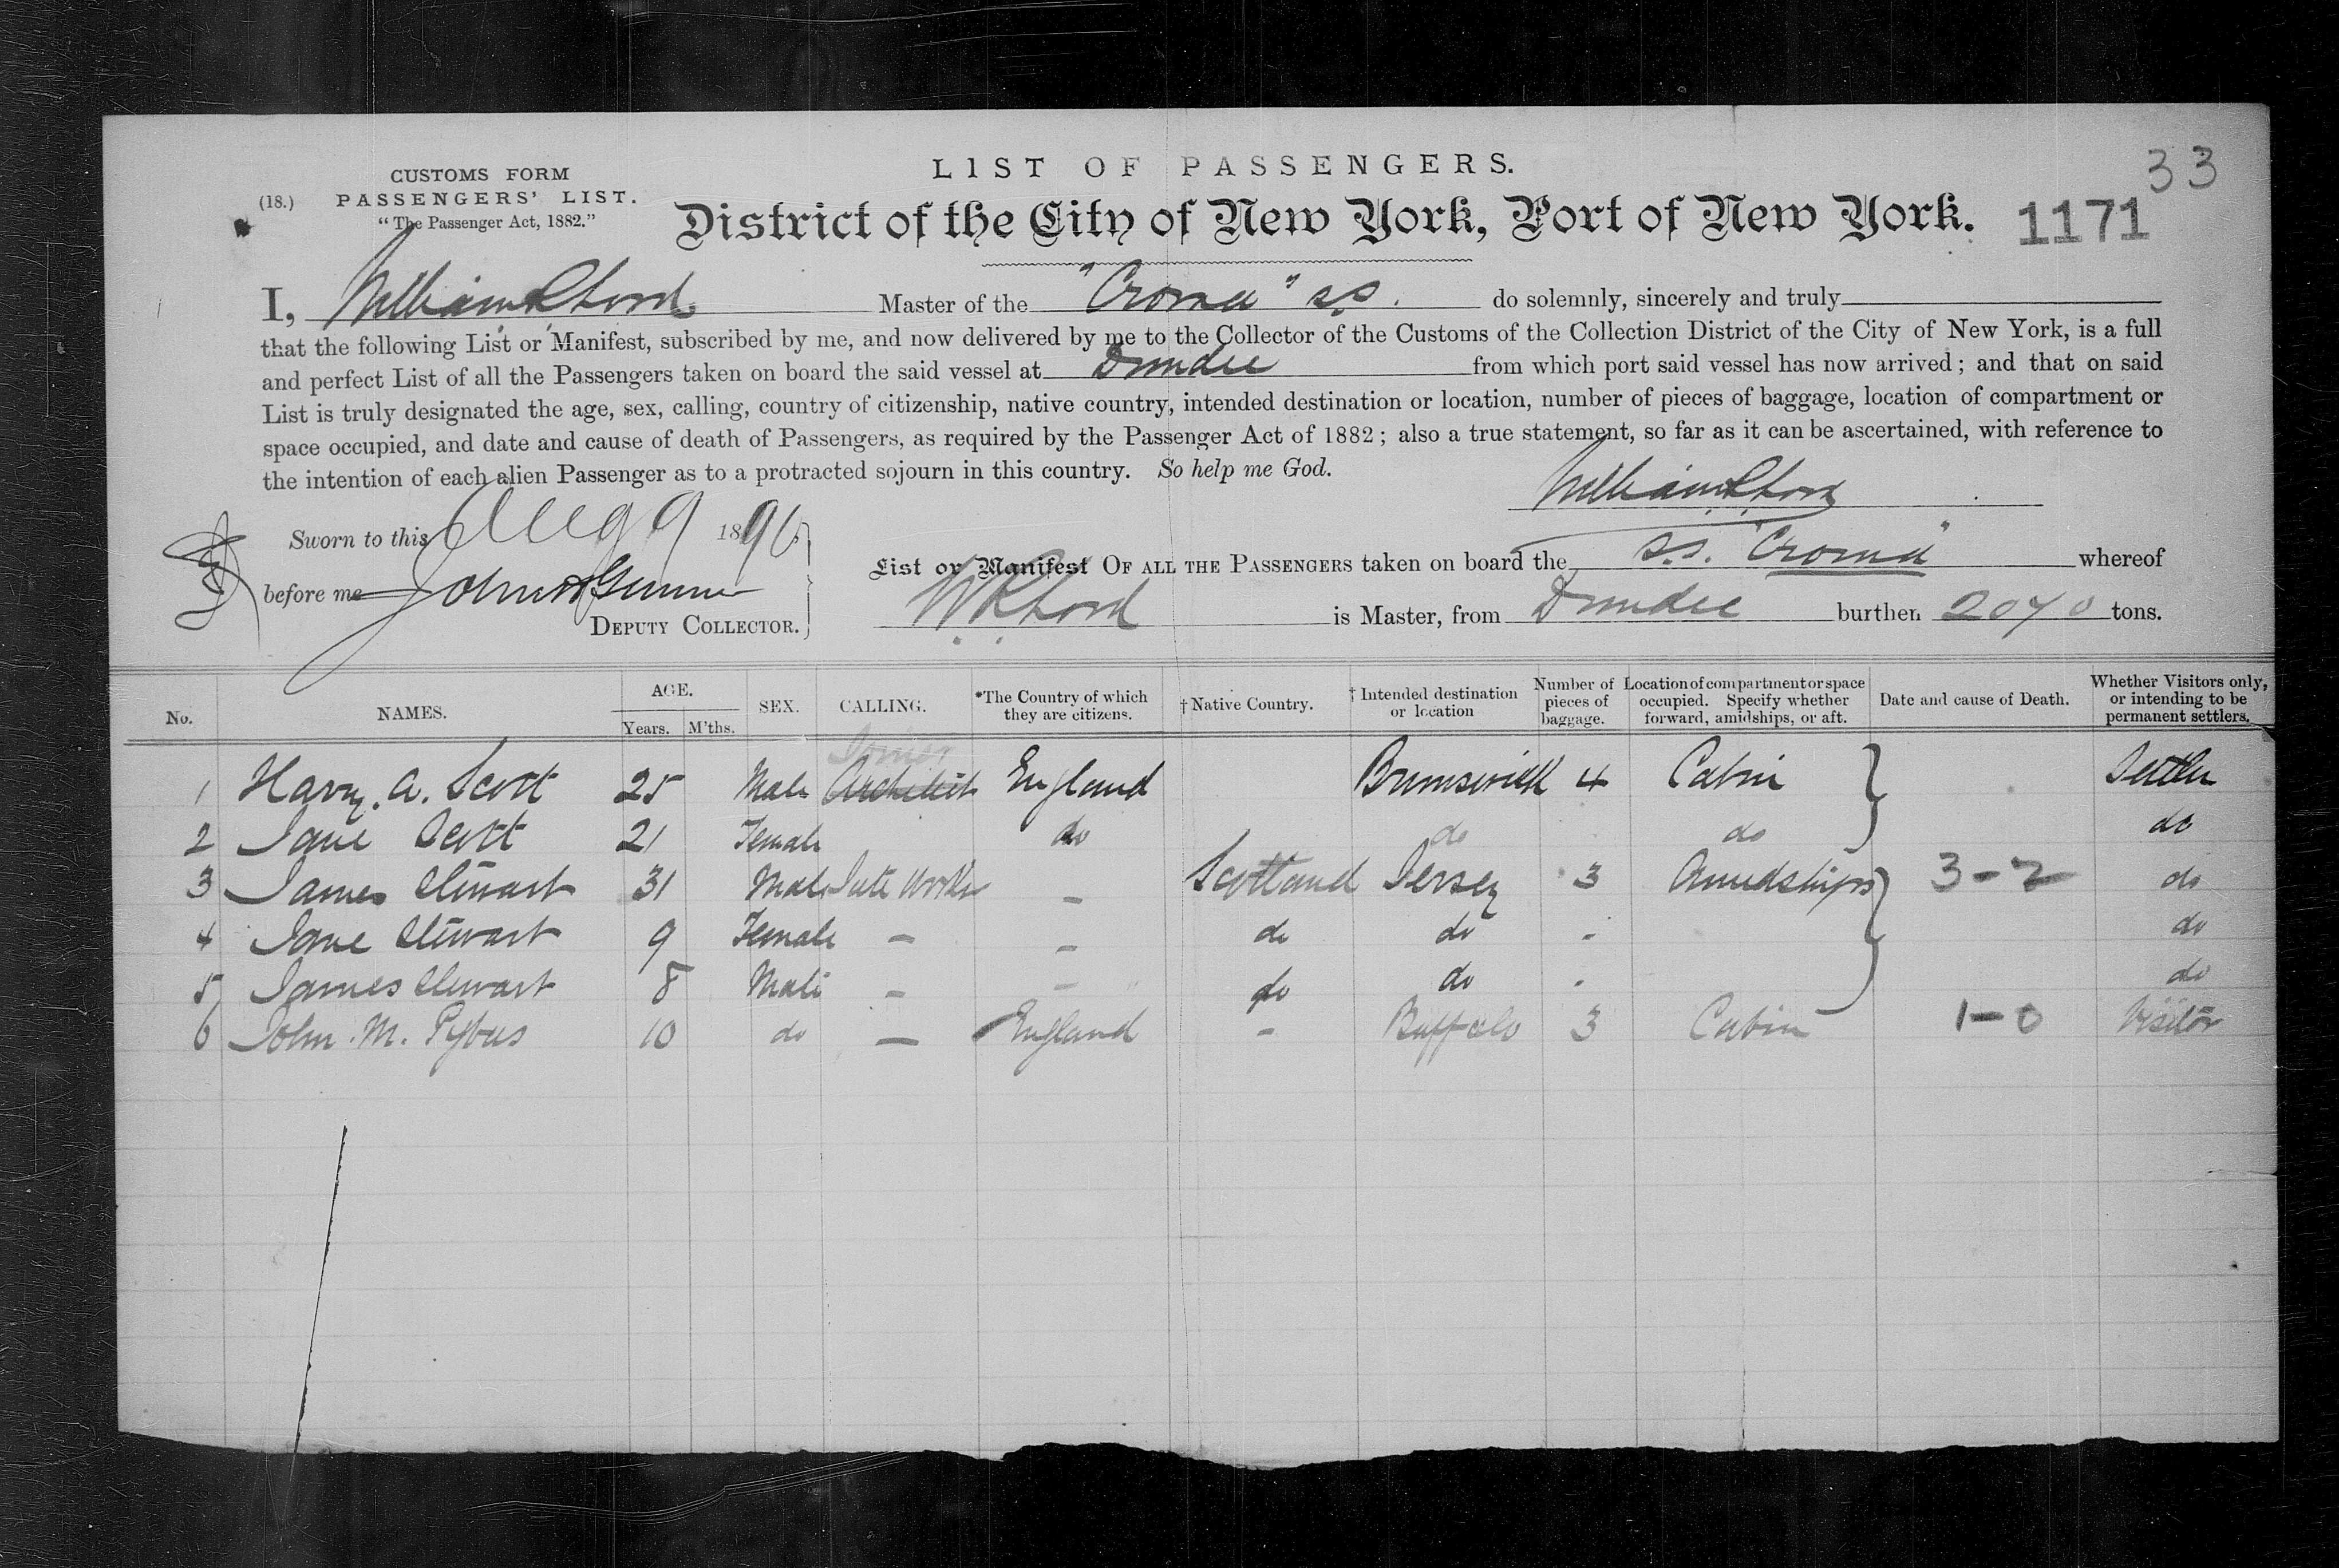 LIST OF PASSENGERS.
33
CUSTOMS FORM
(18.) PASSENGERS' LIST.
"The Passenger Act, 1882."
District of the City of New York, Port of New York. 1171
I, William R Lord Master of the "Croma" s.s. do solemnly, sincerely and truly
that the following List or Manifest, subscribed by me, and now delivered by me to the Collector of the Customs of the Collection District of the City of New York, is a full
and perfect List of all the Passengers taken on board the said vessel at Dundee from which port said vessel has now arrived; and that on said
List is truly designated the age, sex, calling, country of citizenship, native country, intended destination or location, number of pieces of baggage, location of compartment or
space occupied, and date and cause of death of Passengers, as required by the Passenger Act of 1882; also a true statement, so far as it can be ascertained, with reference to
the intention of each alien Passenger as to a protracted sojourn in this country. So help me God.
William R Lord
Sworn to this Aug 9 1890
before me John A Gunner
DEPUTY COLLECTOR.
List or Manifest OF ALL THE PASSENGERS taken on board the s.s. "Croma" whereof
W R Lord is Master, from Dundee burthen 2070 tons.
No. NAMES. AGE. Years. M'ths. SEX. CALLING. *The Country of which they are citizens. †Native Country. †Intended destination or location Number of pieces of baggage. Location of compartment or space occupied. Specify whether forward, amidships, or aft. Date and cause of Death. Whether Visitors only, or intending to be permanent settlers.
Joiner
1 Harry. A. Scott 25 Male Architect England Brunswick 4 Cabin Settler
2 Jane Scott 21 Female do do do do
3 James Stewart 31 Male Jute Worker – Scotland Jersey 3 Amidships 3-2 do
4 Jane Stewart 9 Female – – do do do
5 James Stewart 8 Male – – do do do
6 John. M. Pybus 10 do – England – Buffalo 3 Cabin 1-0 Visitor